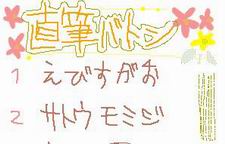 直筆バトン
1 えびすがお
2 サトウモミジ